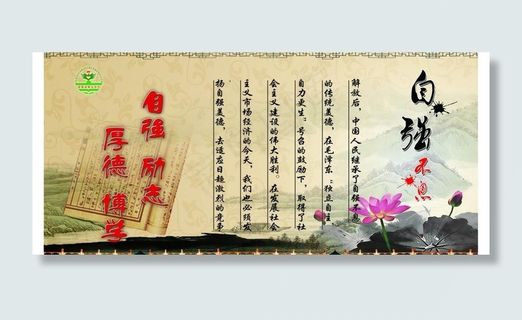 自强
不息
解放后，中国人民继承了自强不息
的传统美德，在毛泽东“独立自主
自力更生”号召的鼓励下，取得了社
会主义建设的伟大胜利。在发展社会
主义市场经济的今天，我们也必须发
扬自强美德，去适应日趋激烈的竞争
自强 励志
厚德 博学